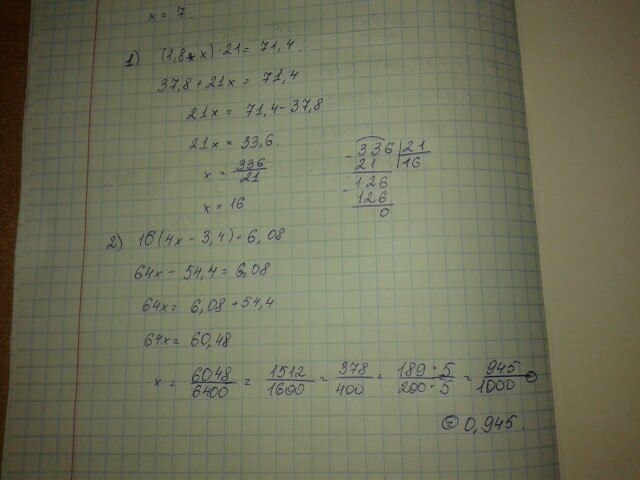 x = 7.
1) (1,8 + x) · 21 = 71,4.
37,8 + 21x = 71,4
21x = 71,4 - 37,8
21x = 33,6.
x = 336/21
x = 16.
- 336 | 21
21 | 16
- 126
126
0
2) 16(4x - 3,4) = 6,08
64x - 54,4 = 6,08
64x = 6,08 + 54,4
64x = 60,48
x = 6048/6400 = 1512/1600 = 378/400 = 189·5/200·5 = 945/1000 =
= 0,945.